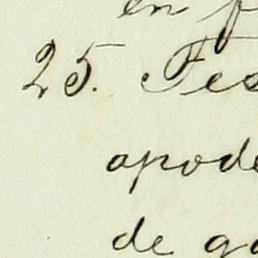 en p
25. Tes
apode
de ga